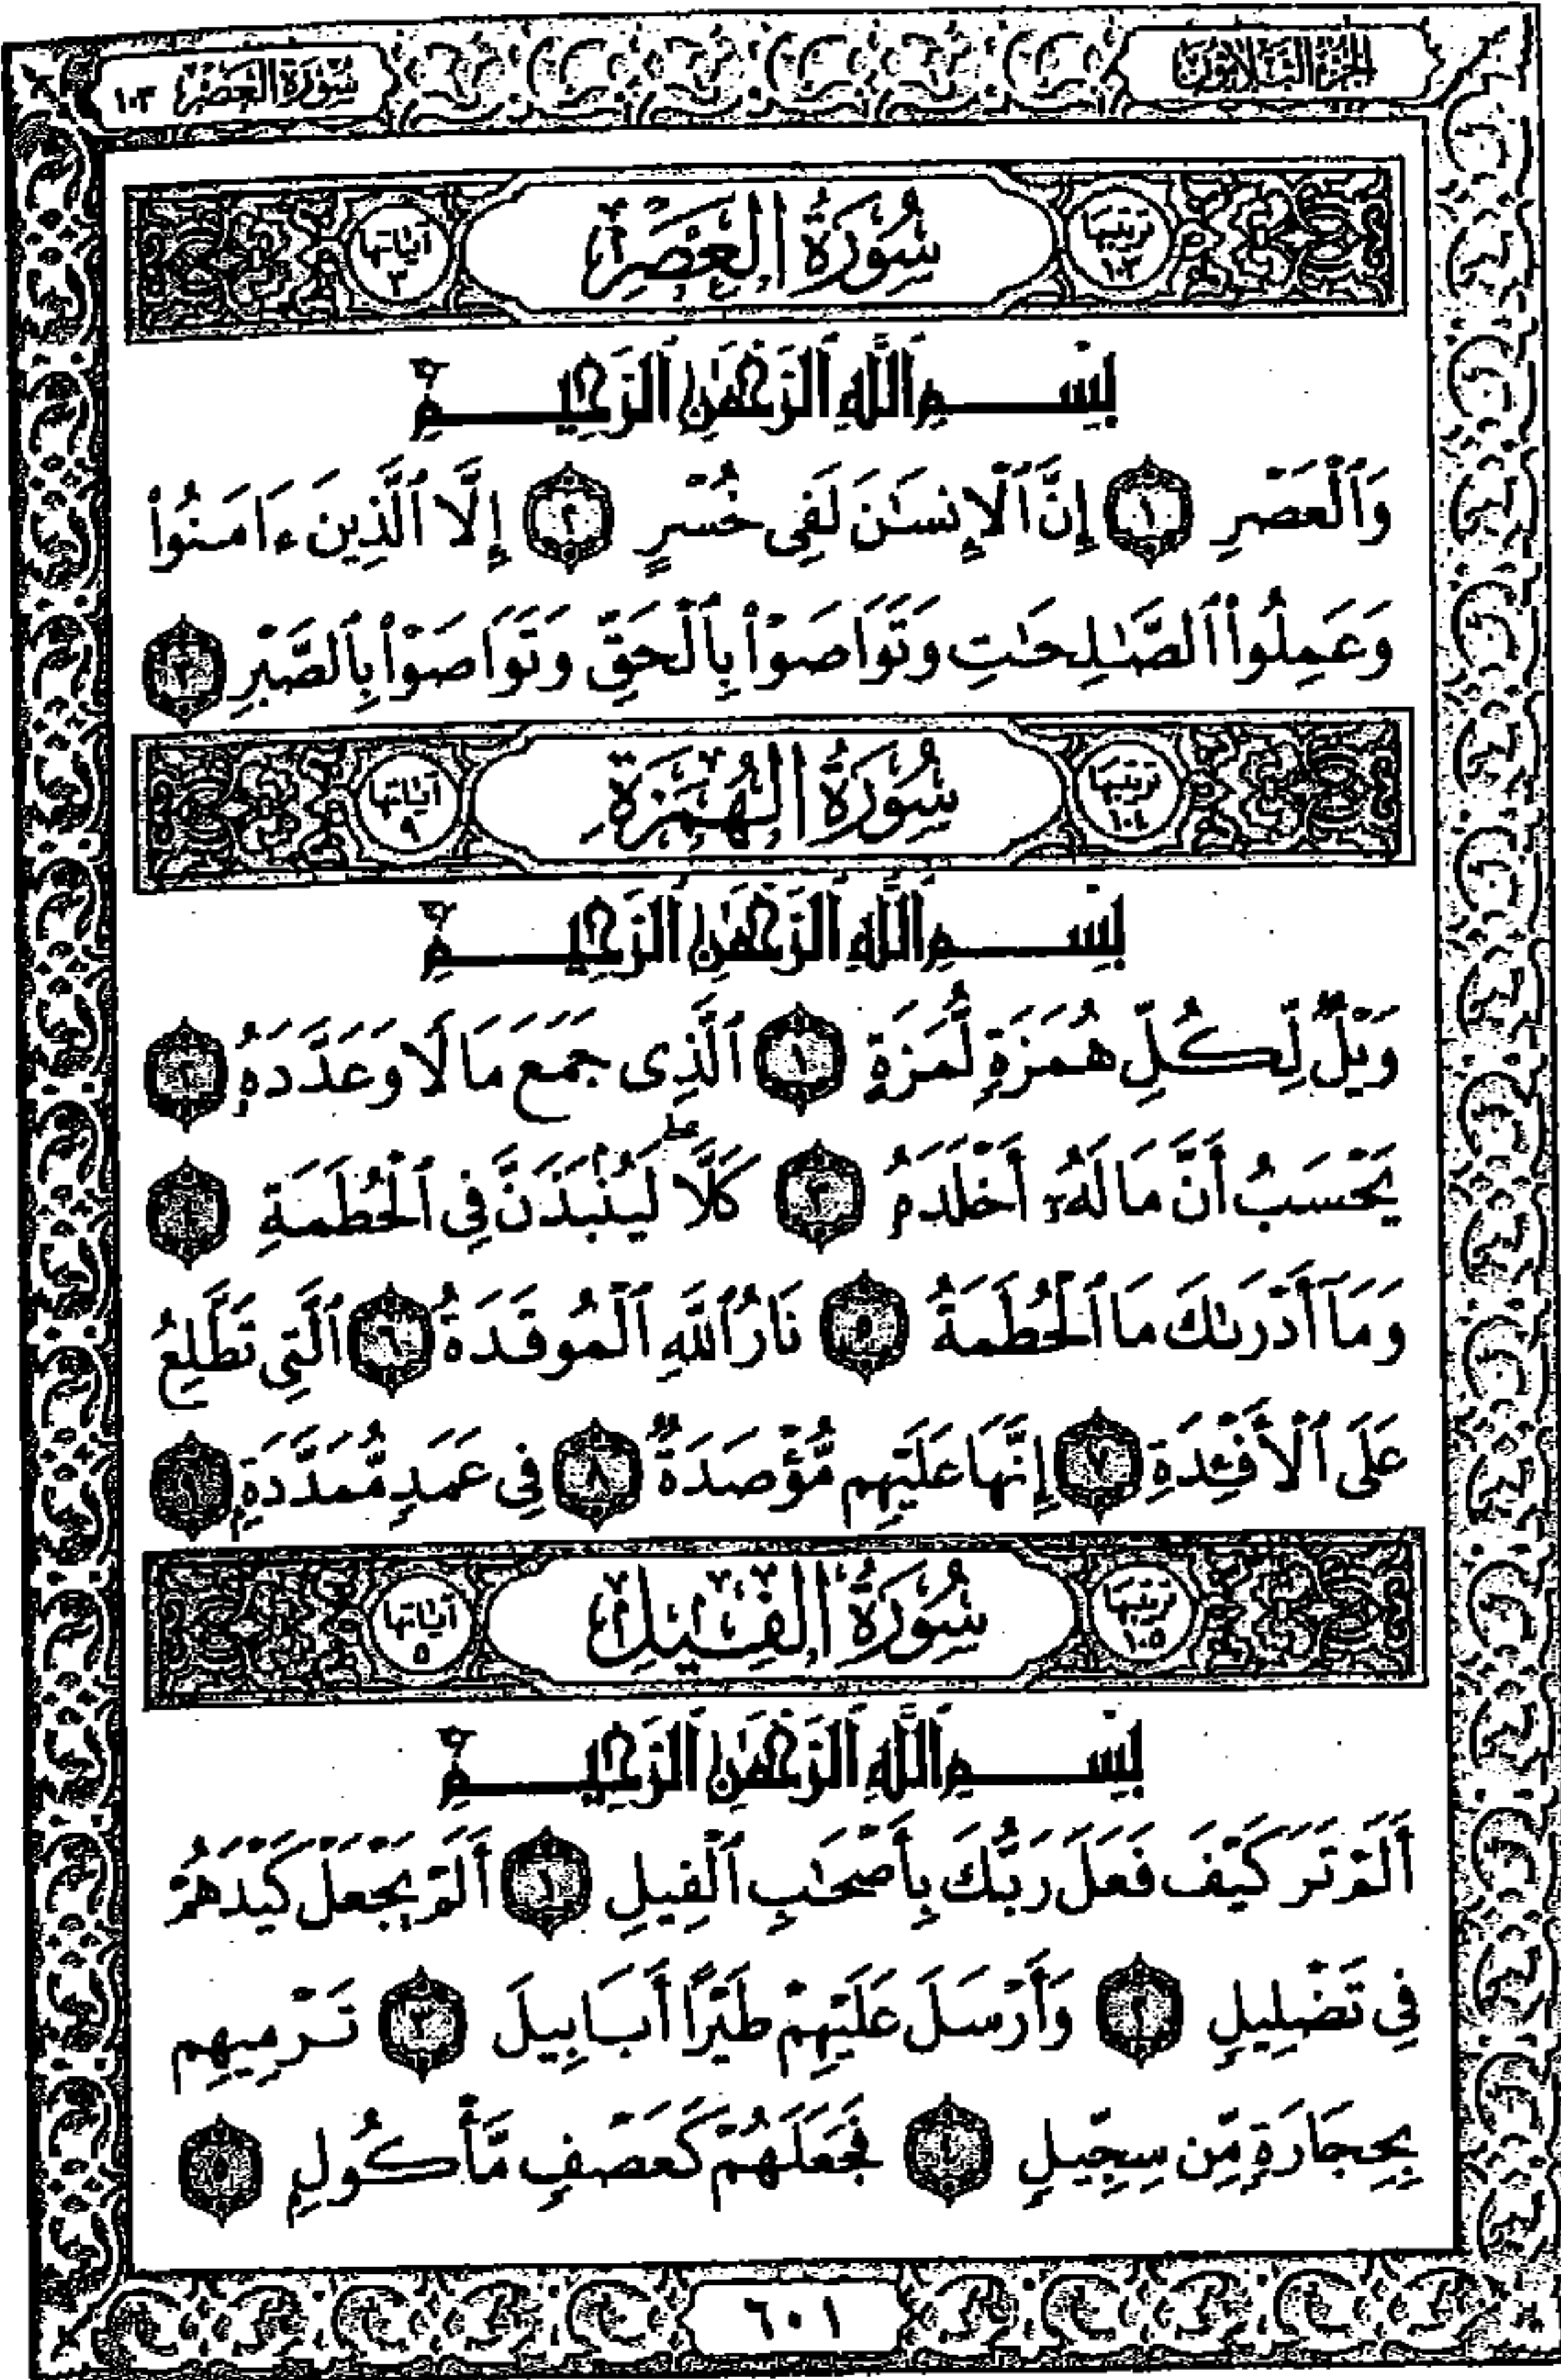 الجزء الثلاثون
سورة العصر ١٠٣
ترتيبها ١٠٣ سُورَةُ الْعَصْرِ آياتها ٣
بِسْمِ ٱللَّهِ ٱلرَّحْمَٰنِ ٱلرَّحِيمِ
وَٱلْعَصْرِ ١ إِنَّ ٱلْإِنسَٰنَ لَفِى خُسْرٍ ٢ إِلَّا ٱلَّذِينَ ءَامَنُوا۟
وَعَمِلُوا۟ ٱلصَّٰلِحَٰتِ وَتَوَاصَوْا۟ بِٱلْحَقِّ وَتَوَاصَوْا۟ بِٱلصَّبْرِ ٣
ترتيبها ١٠٤ سُورَةُ الْهُمَزَةِ آياتها ٩
بِسْمِ ٱللَّهِ ٱلرَّحْمَٰنِ ٱلرَّحِيمِ
وَيْلٌ لِّكُلِّ هُمَزَةٍ لُّمَزَةٍ ١ ٱلَّذِى جَمَعَ مَالًا وَعَدَّدَهُۥ ٢
يَحْسَبُ أَنَّ مَالَهُۥٓ أَخْلَدَهُۥ ٣ كَلَّا ۖ لَيُنۢبَذَنَّ فِى ٱلْحُطَمَةِ ٤
وَمَآ أَدْرَىٰكَ مَا ٱلْحُطَمَةُ ٥ نَارُ ٱللَّهِ ٱلْمُوقَدَةُ ٦ ٱلَّتِى تَطَّلِعُ
عَلَى ٱلْأَفْـِٔدَةِ ٧ إِنَّهَا عَلَيْهِم مُّؤْصَدَةٌ ٨ فِى عَمَدٍ مُّمَدَّدَةٍۭ ٩
ترتيبها ١٠٥ سُورَةُ الْفِيلِ آياتها ٥
بِسْمِ ٱللَّهِ ٱلرَّحْمَٰنِ ٱلرَّحِيمِ
أَلَمْ تَرَ كَيْفَ فَعَلَ رَبُّكَ بِأَصْحَٰبِ ٱلْفِيلِ ١ أَلَمْ يَجْعَلْ كَيْدَهُمْ
فِى تَضْلِيلٍ ٢ وَأَرْسَلَ عَلَيْهِمْ طَيْرًا أَبَابِيلَ ٣ تَرْمِيهِم
بِحِجَارَةٍ مِّن سِجِّيلٍ ٤ فَجَعَلَهُمْ كَعَصْفٍ مَّأْكُولٍۭ ٥
٦٠١